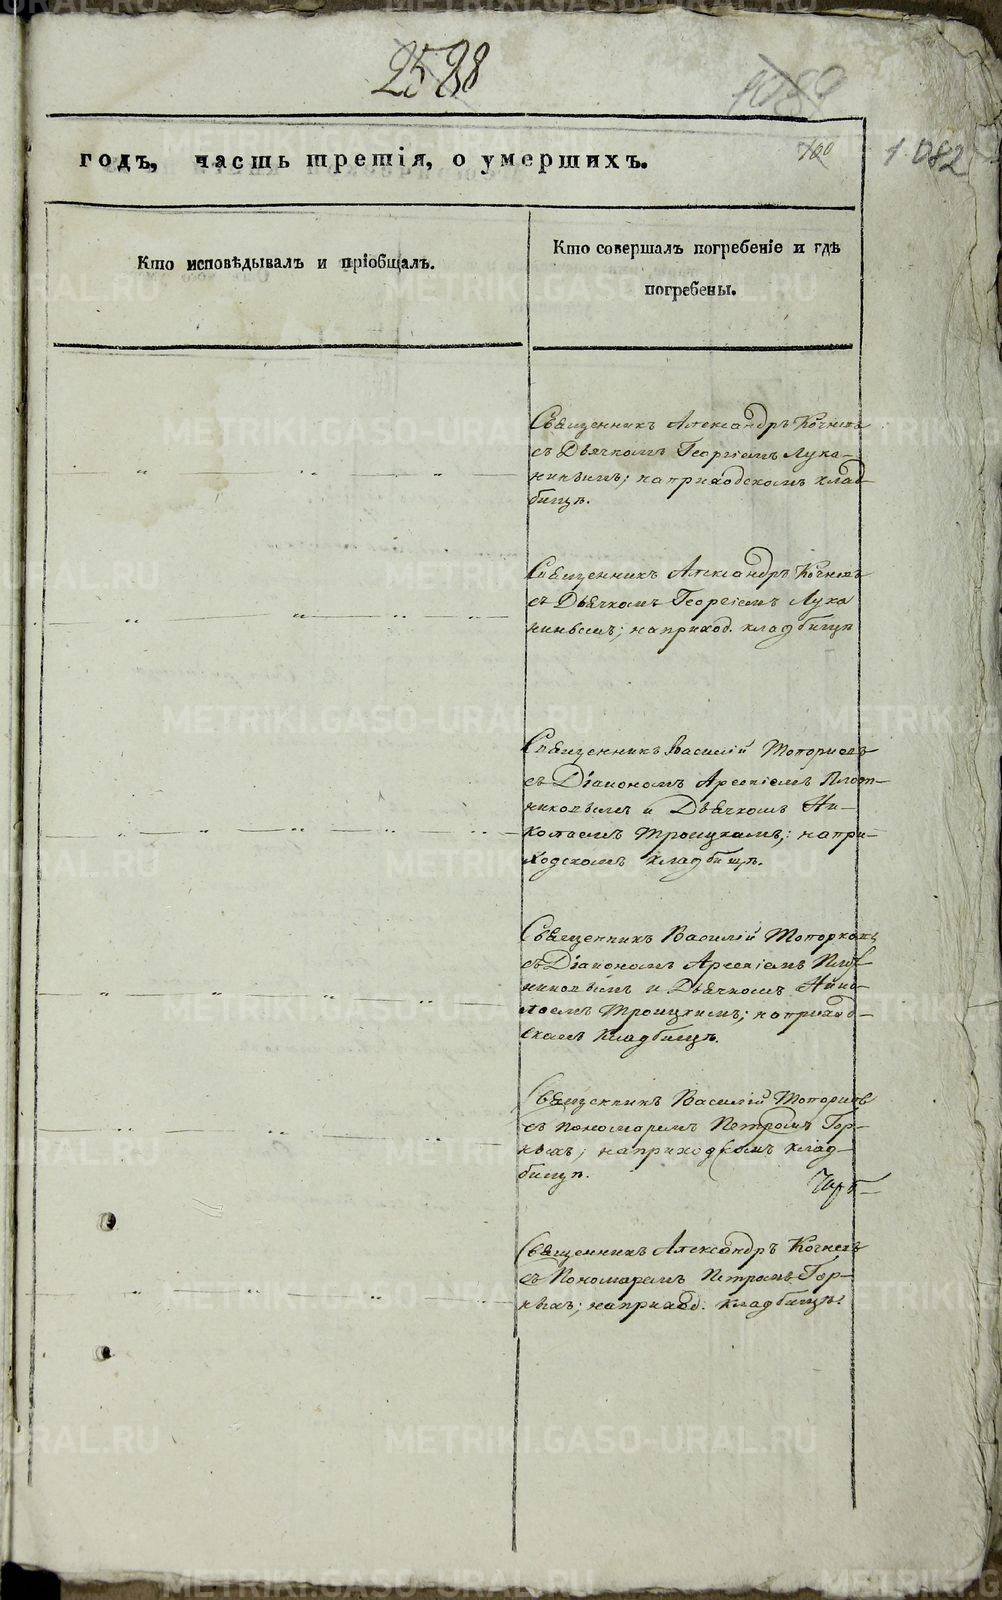 2528
1089
годъ, часть третія, о умершихъ.
100
1082
Кто исповѣдывалъ и пріобщалъ.
Кто совершалъ погребеніе и гдѣ
погребены.
Священникъ Александръ Кочневъ
съ Дьячкомъ Георгіемъ Лука-
нинымъ; на приходскомъ клад-
бищѣ.
Священникъ Александръ Кочневъ
съ Дьячкомъ Георгіемъ Лука
нинымъ; на приход. кладбищѣ
Священникъ Василій Топорковъ
съ Діакономъ Арсеніемъ Плот-
никовымъ и Дьячкомъ Ни-
колаемъ Троицкимъ; на при-
ходскомъ кладбищѣ.
Священникъ Василій Топорковъ
съ Діакономъ Арсеніемъ Плот
никовымъ и Дьячкомъ Нико-
лаемъ Троицкимъ; на приход-
скомъ кладбищѣ.
Священникъ Василій Топорковъ
съ Пономаремъ Петромъ Гор-
ныхъ; на приходскомъ клад-
бищѣ.
Священникъ Александръ Кочневъ
съ Пономаремъ Петромъ Гор-
ныхъ; на приход. кладбищѣ.
METRIKI.GASO-URAL.RU